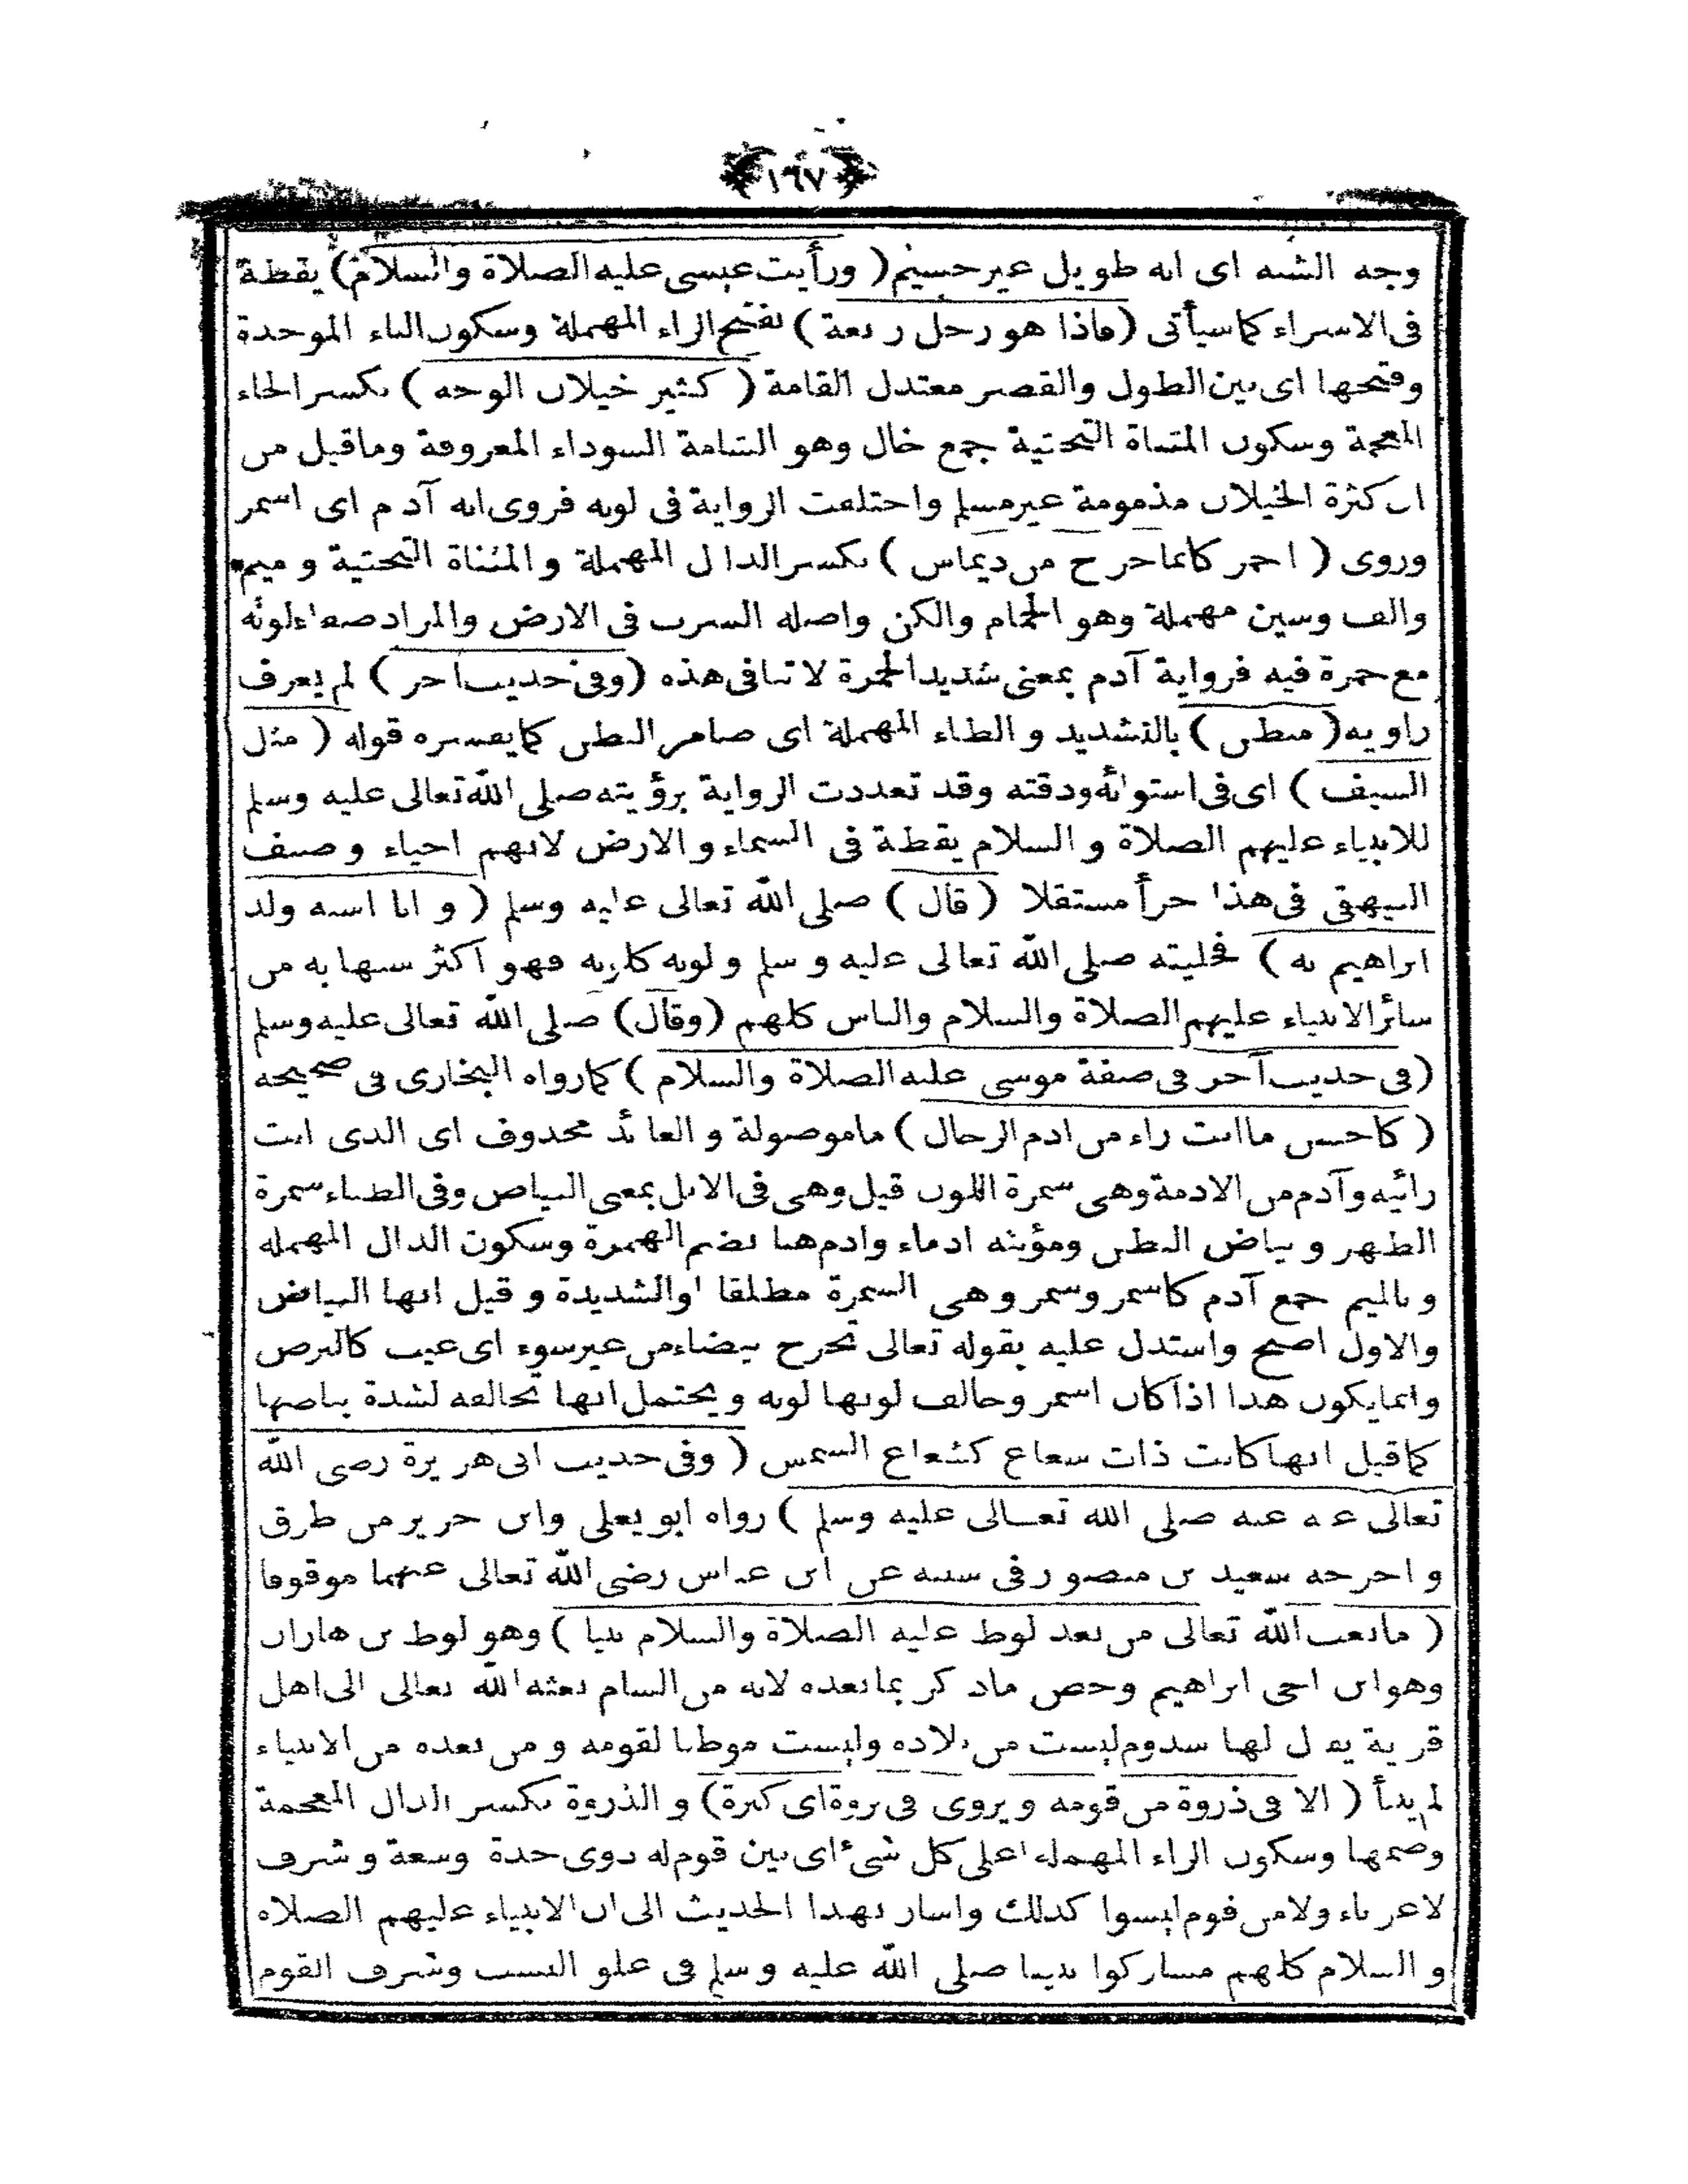 ١٦٧
وجه الشبه اى انه طويل غير جسيم ( ورأيت عيسى عليه الصلاة والسلام ) يقظة
فى الاسراء كما سيأتى ( فاذا هو رجل ربعة ) بفتح الراء المهملة وسكون الباء الموحدة
وفتحها اى بين الطول والقصر معتدل القامة ( كثير خيلان الوجه ) بكسر الخاء
المعجمة وسكون المثناة التحتية جمع خال وهو الشامة السوداء المعروفة وما قيل من
ان كثرة الخيلان مذمومة غير مسلم واختلفت الرواية فى لونه فروى انه آدم اى اسمر
وروى ( احمر كانما خرج من ديماس ) بكسر الدال المهملة والمثناة التحتية وميم
والف وسين مهملة وهو الحمام والكن واصله السرب فى الارض والمراد صفاء لونه
مع حمرة فيه فرواية آدم بمعنى شديد الحمرة لا تنافى هذه ( وفى حديث آخر ) لم يعرف
راويه ( مبطن ) بالتشديد والطاء المهملة اى ضامر البطن كما يفسره قوله ( مثل
السيف ) اى فى استوائه ودقته وقد تعددت الرواية برؤيته صلى الله تعالى عليه وسلم
للانبياء عليهم الصلاة والسلام يقظة فى السماء والارض لانهم احياء وصنف
البيهقى فى هذا جزأ مستقلا ( قال ) صلى الله تعالى عليه وسلم ( وانا اشبه ولد
ابراهيم به ) فحليته صلى الله تعالى عليه وسلم ولونه كلونه فهو اكثر شبها به من
سائر الانبياء عليهم الصلاة والسلام والناس كلهم ( وقال ) صلى الله تعالى عليه وسلم
( فى حديث آخر فى صفة موسى عليه الصلاة والسلام ) كما رواه البخارى فى صحيحه
( كاحسن ما انت راء من ادم الرجال ) ما موصولة والعائد محذوف اى الذى انت
رائيه وآدم من الادمة وهى سمرة اللون قيل وهى فى الابل بمعنى البياض وفى الظباء سمرة
الظهر وبياض البطن ومؤنثه ادماء وادم هنا بضم الهمزة وسكون الدال المهملة
وبالميم جمع آدم كاسمر وسمر وهى السمرة مطلقا او الشديدة وقيل انها البياض
والاول اصح واستدل عليه بقوله تعالى تخرج بيضاء من غير سوء اى عيب كالبرص
وانما يكون هذا اذا كان اسمر وخالف لونها لونه ويحتمل انها تخالفه لشدة بياضها
كما قيل انها كانت ذات شعاع كشعاع الشمس ( وفى حديث ابى هريرة رضى الله
تعالى عنه عنه صلى الله تعالى عليه وسلم ) رواه ابو يعلى وابن جرير من طرق
واخرجه سعيد بن منصور فى سننه عن ابن عباس رضى الله تعالى عنهما موقوفا
( ما بعث الله تعالى من بعد لوط عليه الصلاة والسلام نبيا ) وهو لوط بن هاران
وهو ابن اخى ابراهيم وخص ما ذكر بما بعده لانه من الشام بعثه الله تعالى الى اهل
قرية يقال لها سدوم ليست من بلاده وليست موطنا لقومه ومن بعده من الانبياء
لم ينبأ ( الا فى ذروة من قومه ويروى فى ثروة اى كثرة ) والذروة بكسر الذال المعجمة
وضمها وسكون الراء المهملة اعلى كل شئ اى بين قوم له ذوى حدة وسعة وشرف
لاغرباء ولا من قوم ليسوا كذلك واشار بهذا الحديث الى ان الانبياء عليهم الصلاة
والسلام كلهم مشاركوا نبينا صلى الله عليه وسلم فى علو النسب وشرف القوم